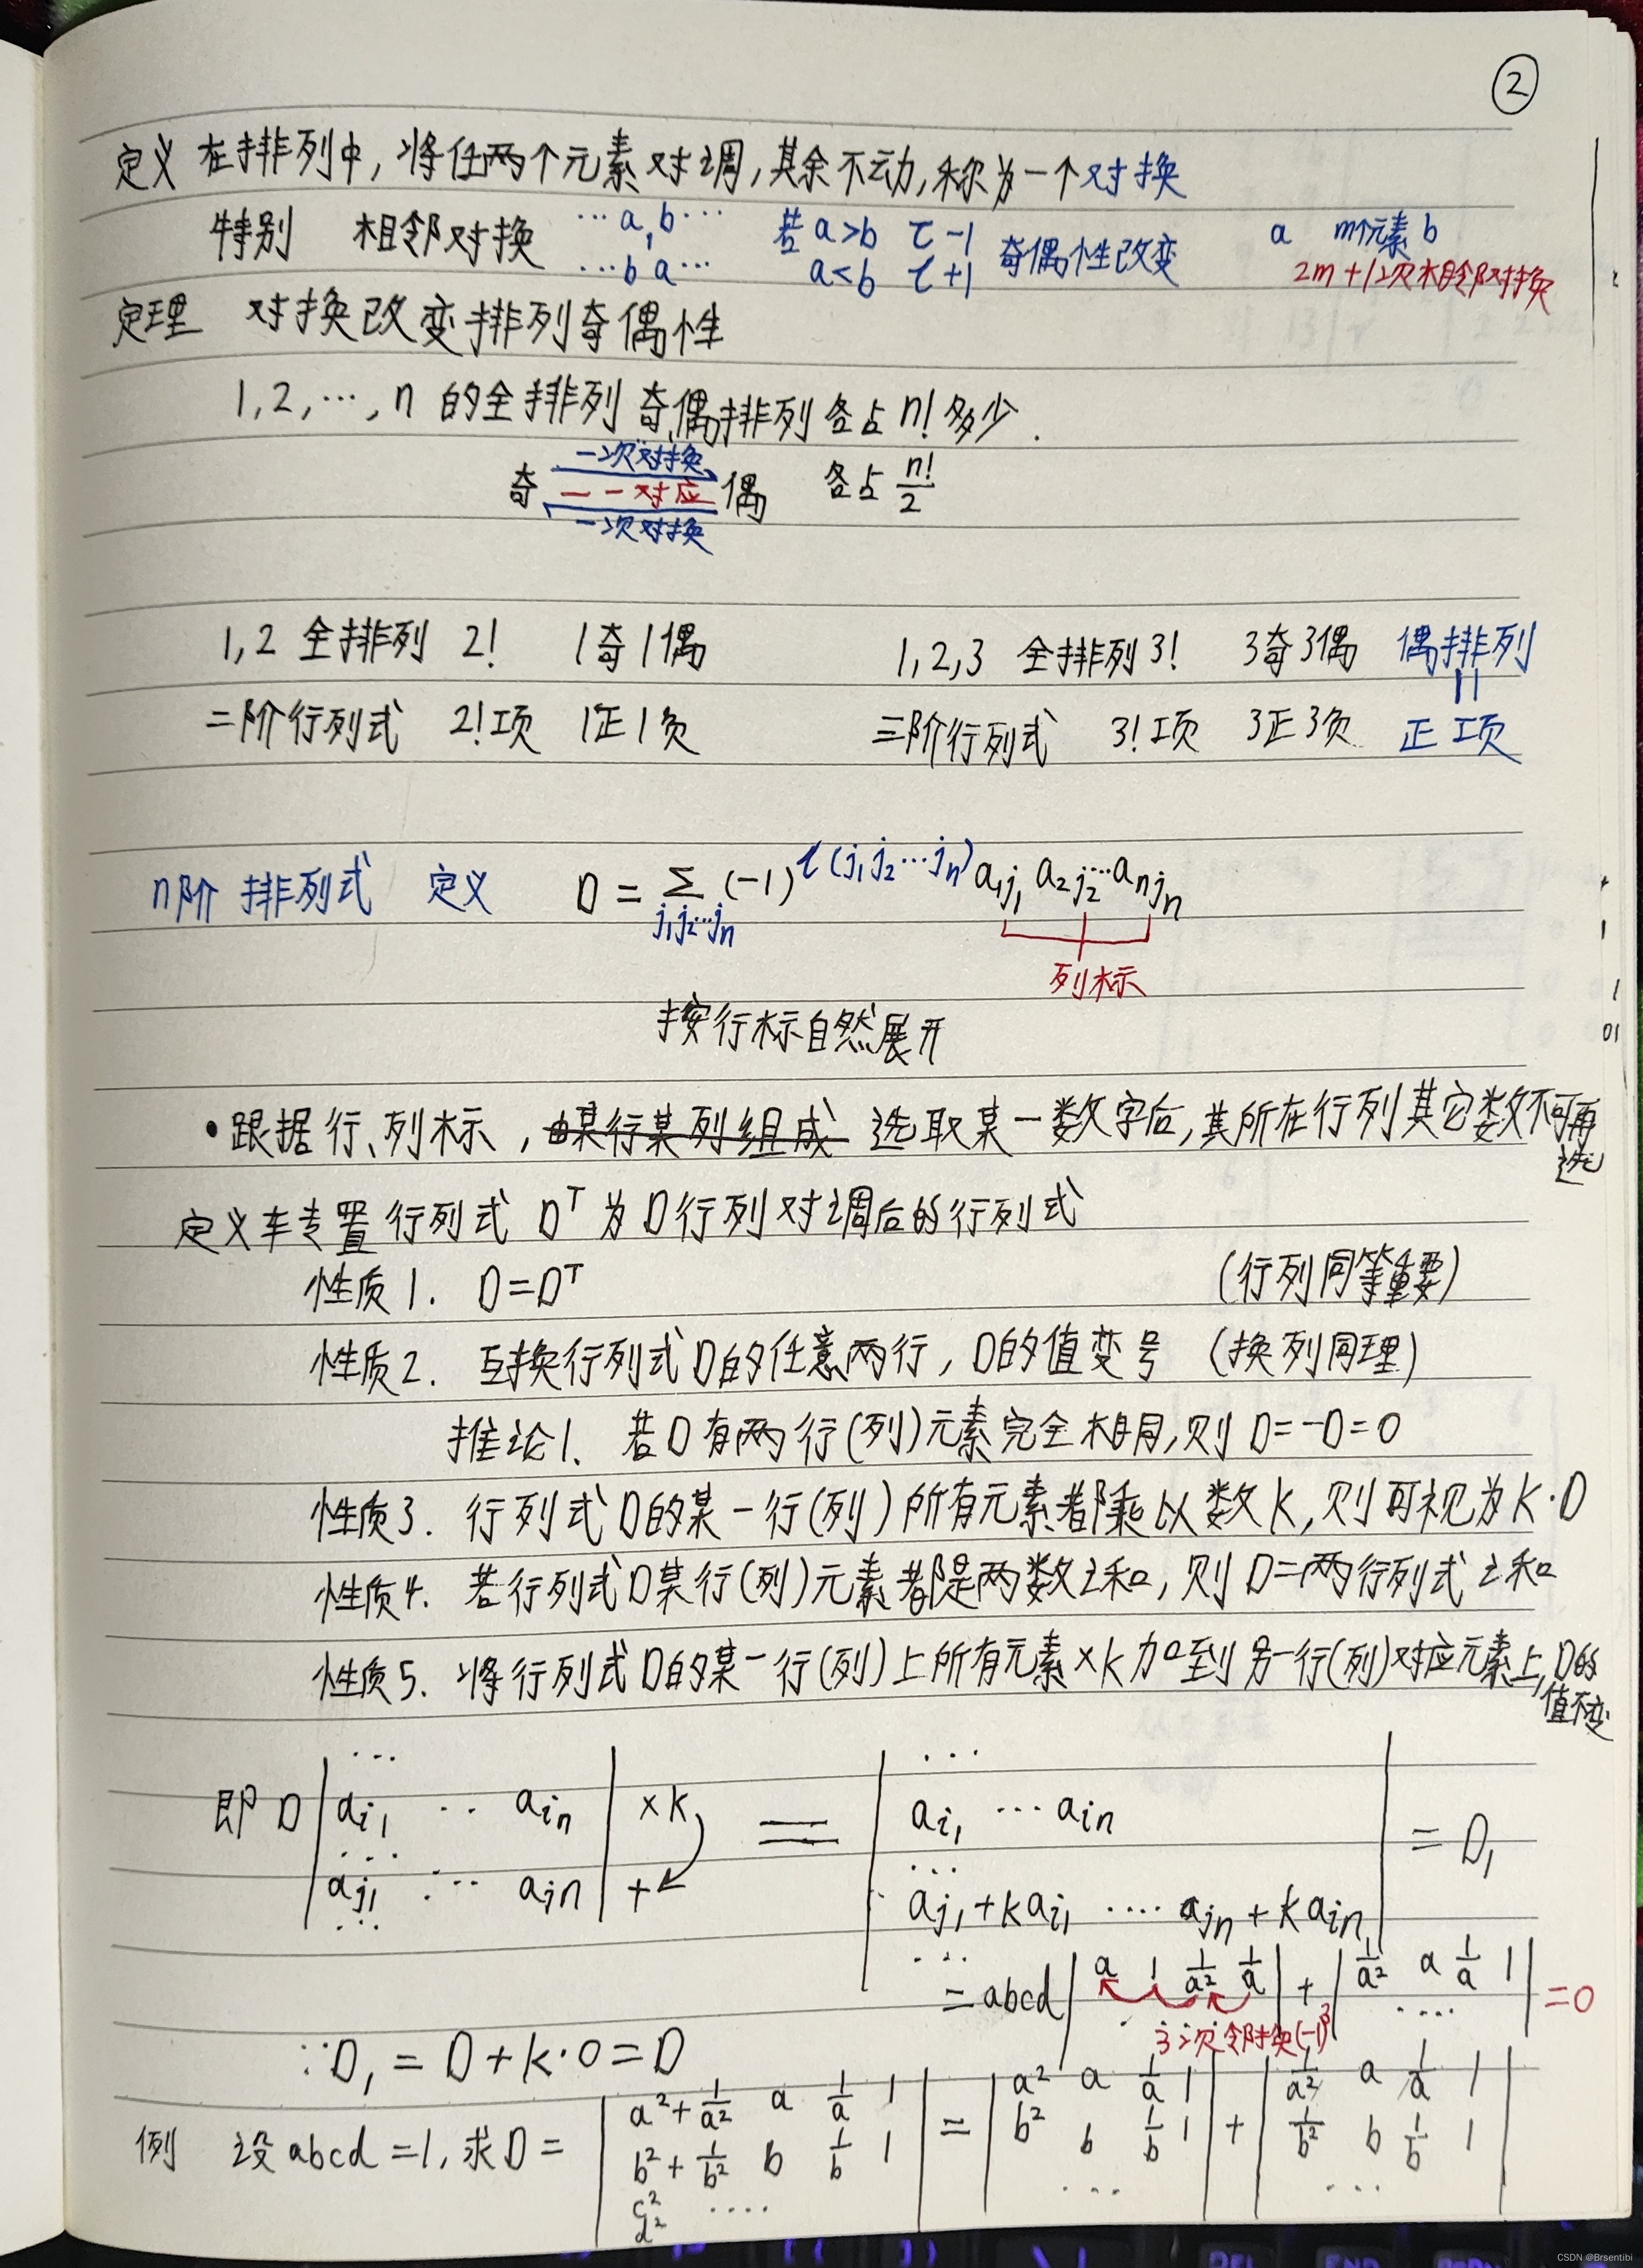 ②
定义 在排列中,将任两个元素对调,其余不动,称为一个对换
特别 相邻对换 …a,b… 若 a>b τ-1 奇偶性改变 a m个元素 b
…b a… a<b τ+1 2m+1次相邻对换
定理 对换改变排列奇偶性
1,2,…,n 的全排列 奇,偶排列 各占 n! 多少.
一次对换
奇 一一对应 偶 各占 n!/2
一次对换
1,2 全排列 2! 1奇1偶 1,2,3 全排列 3! 3奇3偶 偶排列
二阶行列式 2!项 1正1负 三阶行列式 3!项 3正3负 正项
n阶 排列式 定义 D = Σ (-1)^τ(j₁j₂…jₙ) a₁j₁ a₂j₂…aₙjₙ
j₁j₂…jₙ
列标
按行标自然展开
•跟据行、列标,由某行某列组成 选取某一数字后,其所在行列其它数不可再
选
定义车专置行列式 Dᵀ 为D行列对调后的行列式
性质1. D=Dᵀ (行列同等重要)
性质2. 互换行列式D的任意两行,D的值变号 (换列同理)
推论1. 若D有两行(列)元素完全相同,则 D=-D=0
性质3. 行列式D的某一行(列)所有元素都乘以数K,则可视为K·D
性质4. 若行列式D某行(列)元素都是两数之和,则D=两行列式之和
性质5. 将行列式D的某一行(列)上所有元素×k加到另一行(列)对应元素上,D的
值不变
… …
即 D | aᵢ₁ … aᵢₙ | ×k = | aᵢ₁ … aᵢₙ | = D₁
… …
aⱼ₁ … aⱼₙ + aⱼ₁+kaᵢ₁ …. aⱼₙ+kaᵢₙ
… …
=abcd | a 1 1/a² 1/a | + | 1/a² a 1/a 1 | =0
3次邻换(-1)³ ….
∵D₁ = D+k·0=D
例 设abcd=1,求D= | a²+1/a² a 1/a 1 | = | a² a 1/a 1 | + | 1/a² a 1/a 1 |
b²+1/b² b 1/b 1 b² b 1/b 1 1/b² b 1/b 1
c² …. … …
d²
CSDN @Brsentibi